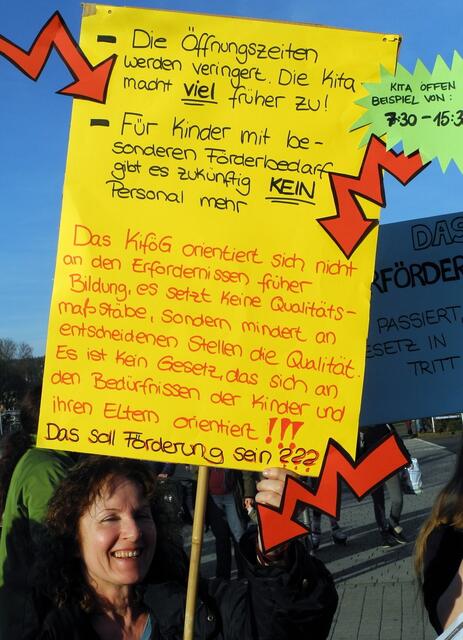 - Die Öffnungszeiten
werden veringert. Die Kita
macht viel früher zu!
- Für Kinder mit be-
sonderen Förderbedarf
gibt es zukünftig KEIN
Personal mehr
Das KiföG orientiert sich nicht
an den Erfordernissen früher
Bildung, es setzt keine Qualitäts-
maßstäbe, sondern mindert an
entscheidenen Stellen die Qualität.
Es ist kein Gesetz, das sich an
den Bedürfnissen der Kinder und
ihren Eltern orientiert !!!
Das soll Förderung sein ???
KITA ÖFFEN
BEISPIEL VON:
7:30 - 15:3
DAS
FÖRDER
PASSIERT,
ESETZ IN
TRITT